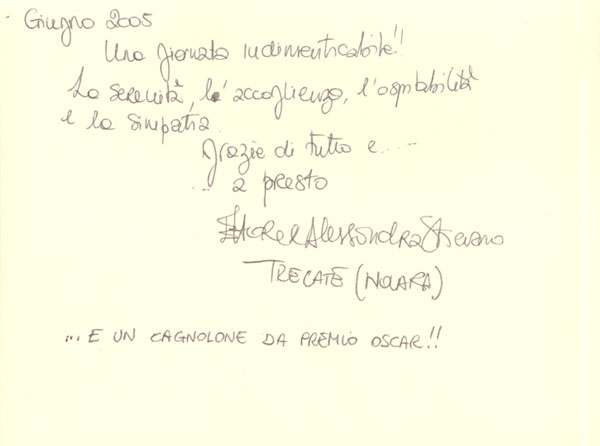 Giugno 2005
Una giornata indimenticabile!!
La serenità, l'accoglienza, l'ospitabilità
e la simpatia.
Grazie di tutto e.....
... a presto
Alessandra Stefano
TRECATE (NOVARA)
... E UN CAGNOLONE DA PREMIO OSCAR!!